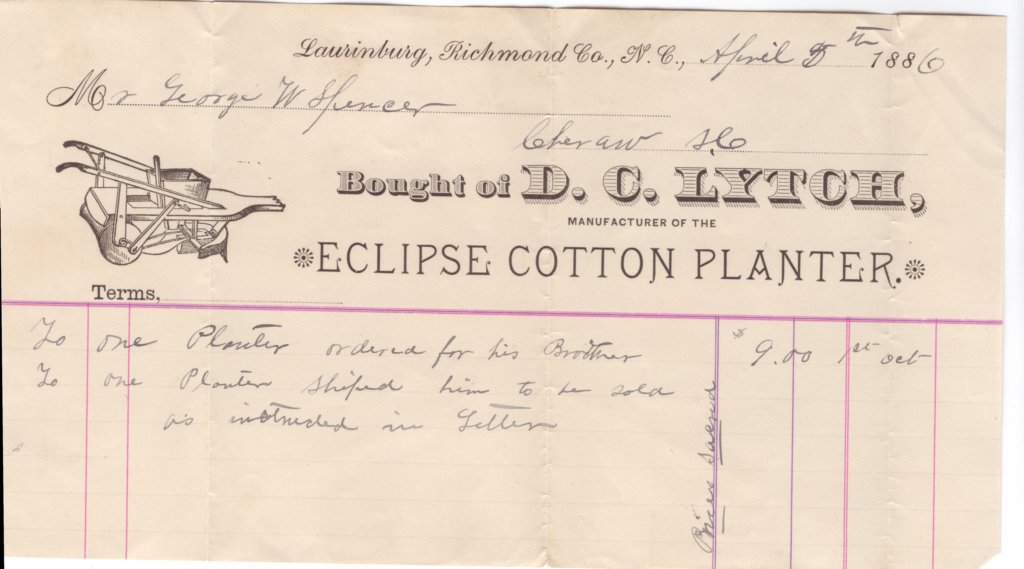 Laurinburg, Richmond Co., N. C., April 5th 1886
Mr George W Spencer
Cheraw S.C
Bought of D. C. LYTCH,
MANUFACTURER OF THE
ECLIPSE COTTON PLANTER.
Terms,
To one Planter ordered for his Brother $9.00 1st Oct
To one Planter Shiped him to be sold
as instructed in Letter
Prices